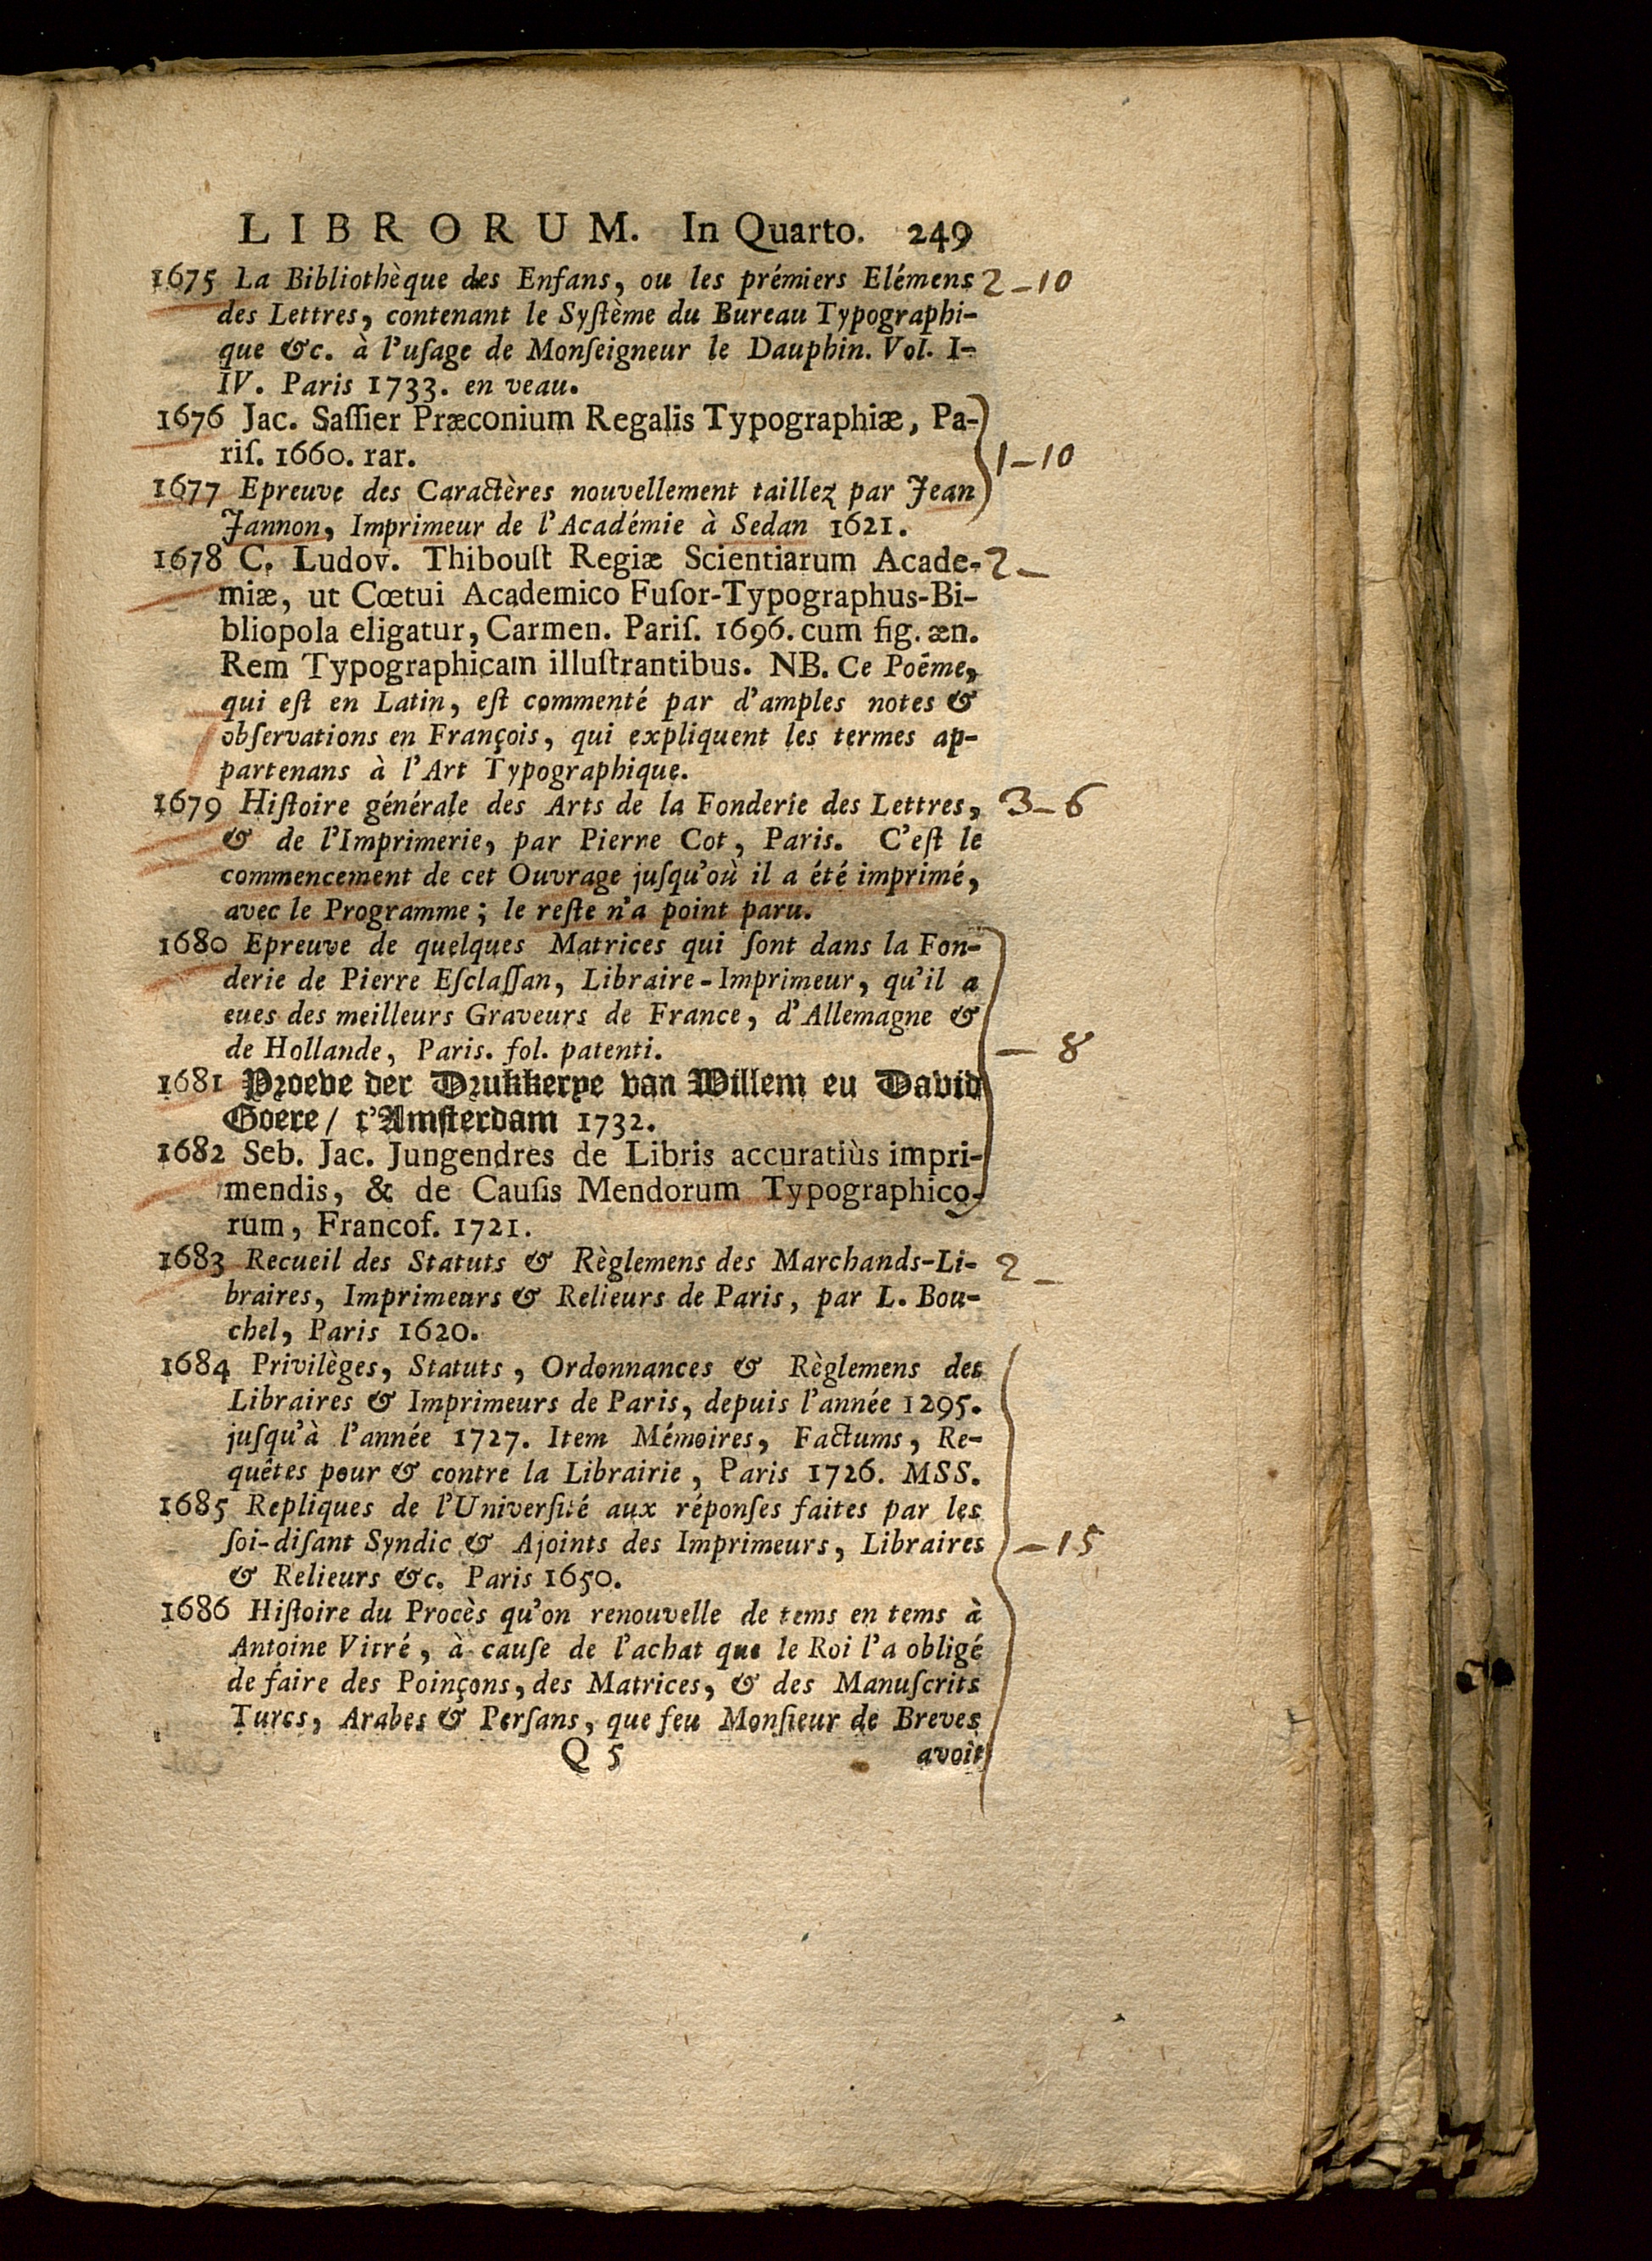 LIBRORUM. In Quarto. 249
1675 La Bibliothèque des Enfans, ou les prémiers Elémens 2-10
des Lettres, contenant le Syſtème du Bureau Typographi-
que &c. à l'uſage de Monſeigneur le Dauphin. Vol. I-
IV. Paris 1733. en veau.
1676 Jac. Saſſier Præconium Regalis Typographiæ, Pa-
riſ. 1660. rar. 1-10
1677 Epreuve des Caractères nouvellement taillez par Jean
Jannon, Imprimeur de l'Académie à Sedan 1621.
1678 C. Ludov. Thibouſt Regiæ Scientiarum Acade- 2-
miæ, ut Cœtui Academico Fuſor-Typographus-Bi-
bliopola eligatur, Carmen. Pariſ. 1696. cum fig. æn.
Rem Typographicam illuſtrantibus. NB. Ce Poëme,
qui eſt en Latin, eſt commenté par d'amples notes &
obſervations en François, qui expliquent les termes ap-
partenans à l'Art Typographique.
1679 Hiſtoire générale des Arts de la Fonderie des Lettres, 3-6
& de l'Imprimerie, par Pierre Cot, Paris. C'eſt le
commencement de cet Ouvrage juſqu'où il a été imprimé,
avec le Programme; le reſte n'a point paru.
1680 Epreuve de quelques Matrices qui ſont dans la Fon-
derie de Pierre Eſclaſſan, Libraire-Imprimeur, qu'il a
eues des meilleurs Graveurs de France, d'Allemagne &
de Hollande, Paris. fol. patenti. - 8
1681 Proeve der Drukkerye van Willem eu David
Goere / t'Amſterdam 1732.
1682 Seb. Jac. Jungendres de Libris accuratiùs impri-
mendis, & de Cauſis Mendorum Typographico-
rum, Francof. 1721.
1683 Recueil des Statuts & Règlemens des Marchands-Li- 2-
braires, Imprimeurs & Relieurs de Paris, par L. Bou-
chel, Paris 1620.
1684 Privilèges, Statuts, Ordonnances & Règlemens des
Libraires & Imprimeurs de Paris, depuis l'année 1295.
juſqu'à l'année 1727. Item Mémoires, Factums, Re-
quêtes pour & contre la Librairie, Paris 1726. MSS.
1685 Repliques de l'Univerſité aux réponſes faites par les
ſoi-diſant Syndic & Ajoints des Imprimeurs, Libraires - 15
& Relieurs &c. Paris 1650.
1686 Hiſtoire du Procès qu'on renouvelle de tems en tems à
Antoine Vitré, à cauſe de l'achat que le Roi l'a obligé
de faire des Poinçons, des Matrices, & des Manuſcrits
Turcs, Arabes & Perſans, que feu Monſieur de Breves
Q 5 avoit